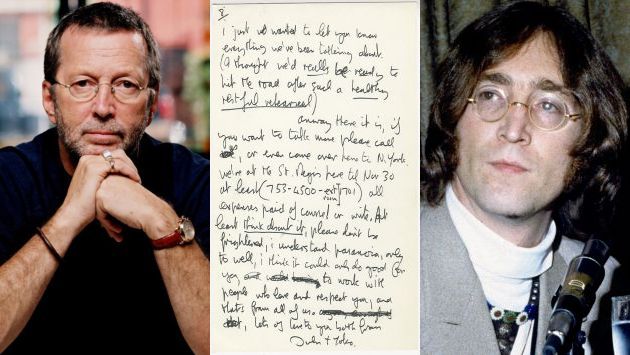 8/
I just wanted to let you know
everything we've been talking about.
(I thought we'd really be ready to
hit the road after such a healthy
restful rehearsal)
anyway there it is, if
you want to talk more please call
or even come over here to N. York.
we're at the St. Regis here til Nov 30
at least (753-4500-ext/room 1701) all
expenses paid of course! or write. At
least think about it, please don't be
frightened, i understand paranoia, only
to well, i think it could only do good for
you to work with
people who love and respect you, and
thats from all of us
lots of love to you both from
John + Yoko.